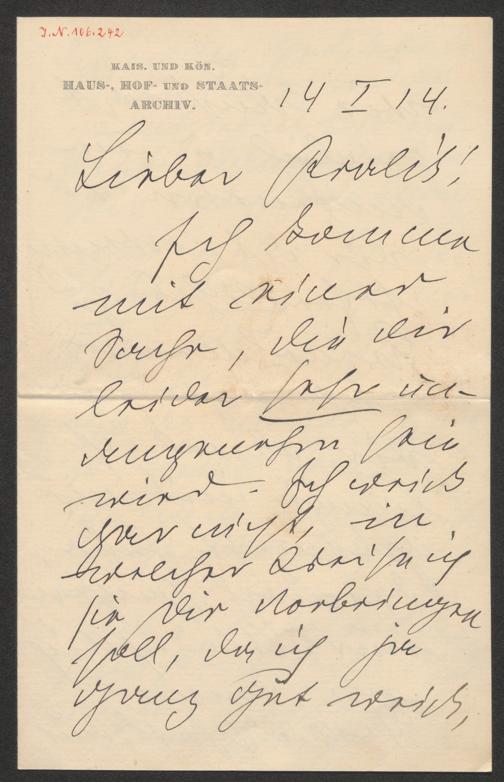 I.N. 106.242
KAIS. UND KÖN.
HAUS-, HOF- UND STAATS-
ARCHIV.
14 I 14.
Lieber Kralik!
Ich komme
mit einer
Sache, die dir
leider sehr un-
angenehm sein
wird. Ich weiß
gar nicht, in
welcher Weise ich
sie Dir vorbringen
soll, da ich ja
ganz gut weiß,